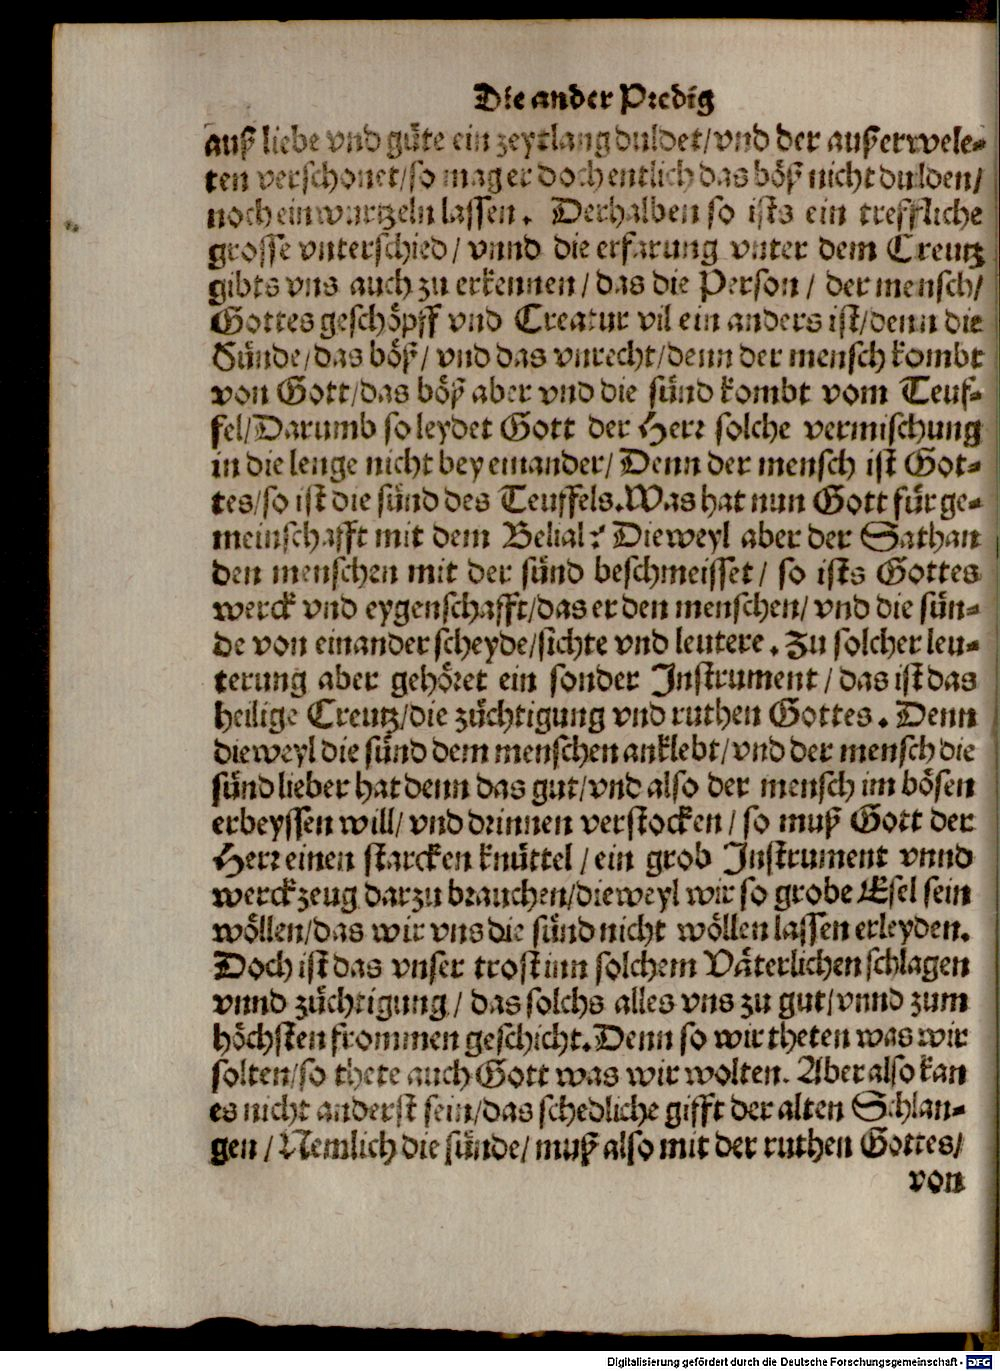 Die ander Predig
auß liebe vnd güte ein zeytlang duldet/vnd der außerwele-
ten verschonet/so mag er doch entlich das böß nicht dulden/
noch einwurtzeln lassen. Derhalben so ists ein treffliche
grosse vnterschied/ vnnd die erfarung vnter dem Creutz
gibts vns auch zu erkennen/ das die Person/ der mensch/
Gottes geschöpff vnd Creatur vil ein anders ist/denn die
Sünde/das böß/ vnd das vnrecht/denn der mensch kombt
von Gott/das böß aber vnd die sünd kombt vom Teuf-
fel/Darumb so leydet Gott der Herr solche vermischung
in die lenge nicht bey einander/ Denn der mensch ist Got-
tes/so ist die sünd des Teuffels.Was hat nun Gott für ge-
meinschafft mit dem Belial? Dieweyl aber der Sathan
den menschen mit der sünd beschmeisset/ so ists Gottes
werck vnd eygenschafft/das er den menschen/ vnd die sün-
de von einander scheyde/sichte vnd leutere. Zu solcher leu-
terung aber gehöret ein sonder Instrument/ das ist das
heilige Creutz/die züchtigung vnd ruthen Gottes. Denn
dieweyl die sünd dem menschen anklebt/vnd der mensch die
sünd lieber hat denn das gut/vnd also der mensch im bösen
erbeyssen will/ vnd drinnen verstocken/ so muß Gott der
Herr einen starcken knüttel/ ein grob Instrument vnnd
werckzeug darzu brauchen/dieweyl wir so grobe Esel sein
wöllen/das wir vns die sünd nicht wöllen lassen erleyden.
Doch ist das vnser trost inn solchem Väterlichen schlagen
vnnd züchtigung/ das solchs alles vns zu gut/vnnd zum
höchsten frommen geschicht.Denn so wir theten was wir
solten/so thete auch Gott was wir wolten. Aber also kan
es nicht anderst sein/das schedliche gifft der alten Schlan-
gen/ Nemlich die sünde/ muß also mit der ruthen Gottes/
von
Digitalisierung gefördert durch die Deutsche Forschungsgemeinschaft - DFG